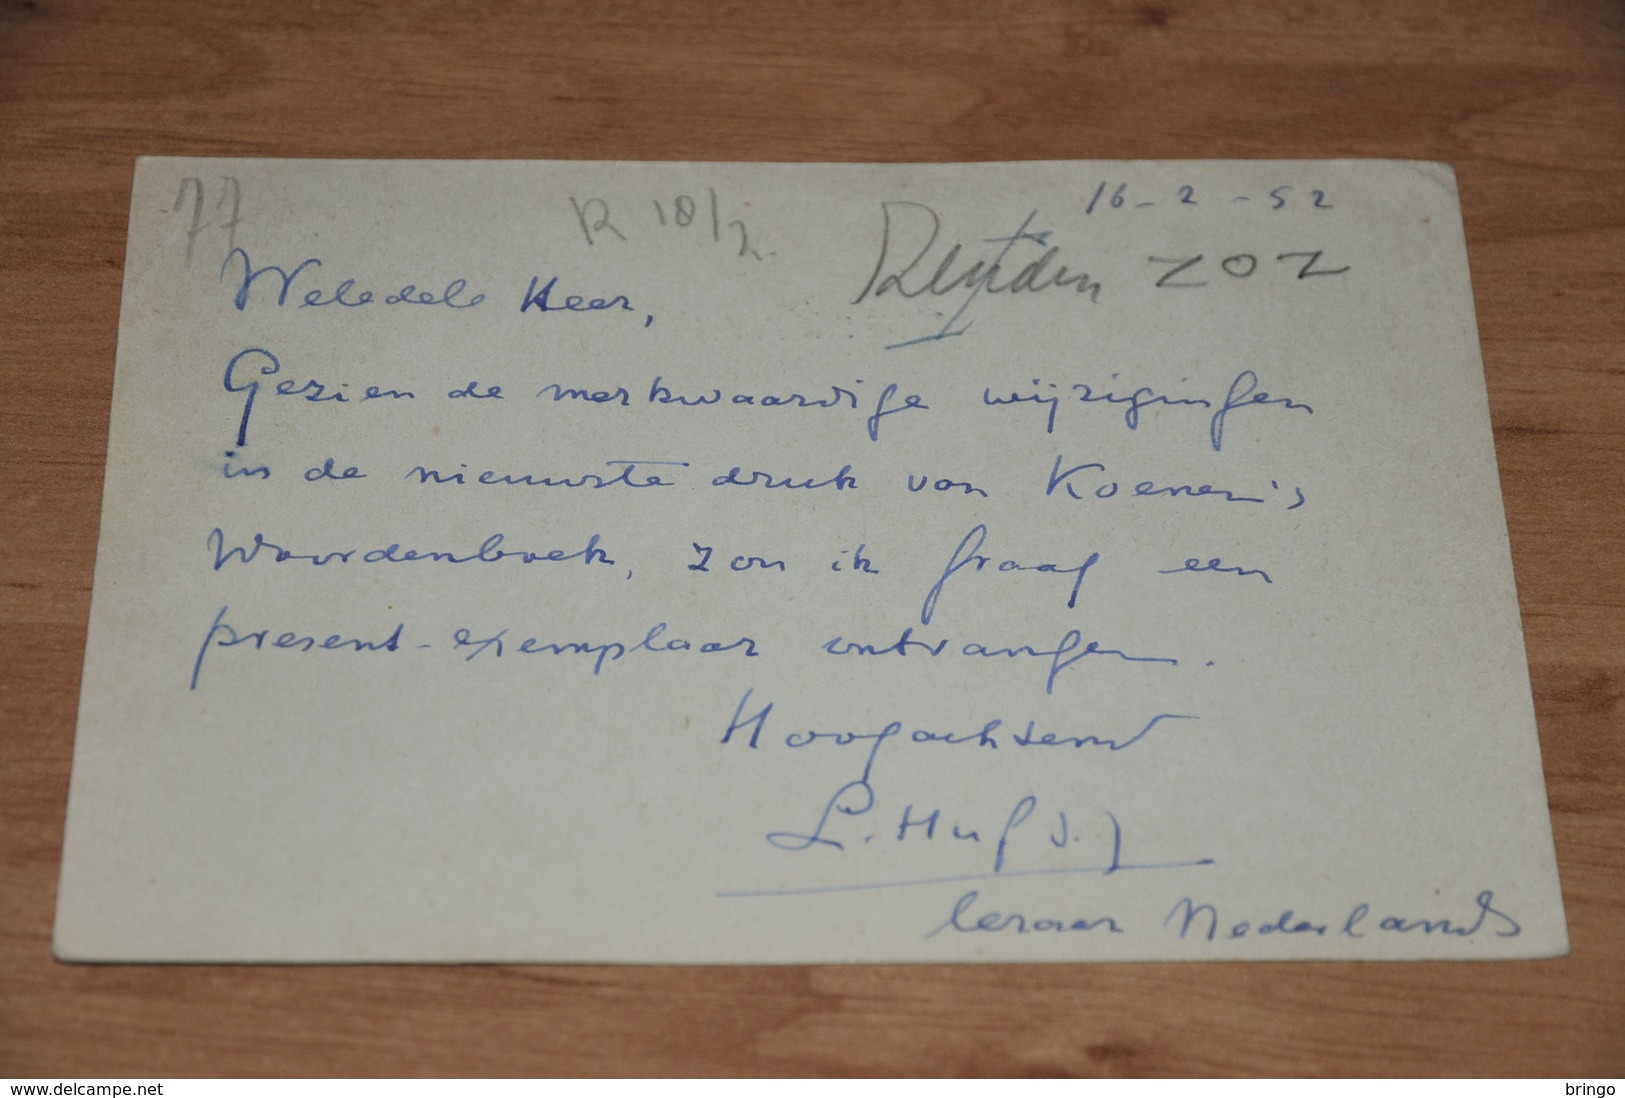 77
R 18/2.
16-2-52
ZOZ
Weledele Heer,
Gezien de merkwaardige wijzigingen
in de nieuwste druk van Koenen's
Woordenboek, zou ik graag een
present-exemplaar ontvangen.
Hoogachtend
L.
leraar Nederlands
www.delcampe.net
bringo